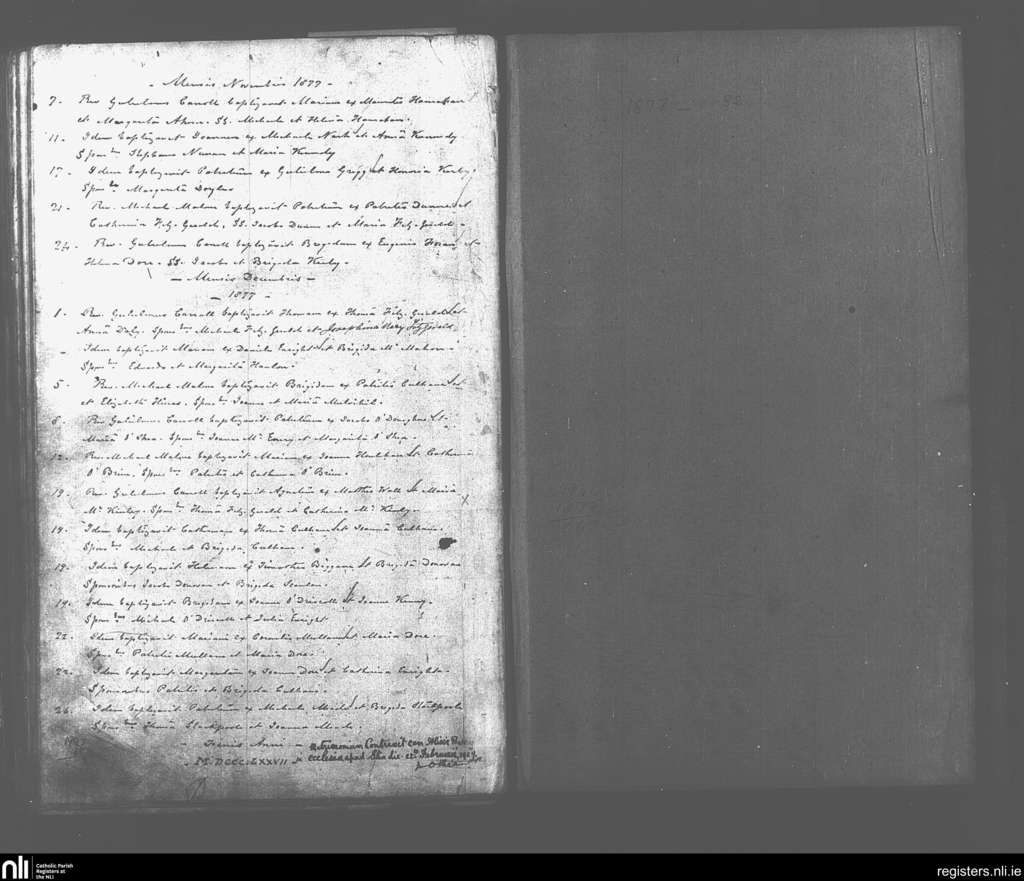 - Mensis Novembris 1877 -
7. Rev Gulielmus Carroll baptizavit Mariam ex Mauritio Hanrahan
et Margarita Ahern. SS. Michaele et Helena Hanrahan.
11. Idem baptizavit Joannem ex Michaele Nash et Anna Kennedy
Spons bus Stephano Nunan et Maria Kennedy
17. Idem baptizavit Patritium ex Gulielmo Grigg et Honoria Kerby
Spon bus Margarita Doyle
21. Rev. Michael Malone baptizavit Patritium ex Patritio Dunne et
Catherina Fitz-Gerald, SS. Jacobo Dunne et Maria Fitz-Gerald -
24. Rev. Gulielmus Carroll baptizavit Brigidam ex Eugenio Horan et
Helena Dore. SS. Jacobo et Brigida Kerby -
- Mensis Decembris -
- 1877 -
1. Rev. Gulielmus Carroll baptizavit Thomam ex Thomâ Fitz-Gerald et
Annâ Daly. Spon bus Michaele Fitz-Gerald et Josephina Mary
- Idem baptizavit Mariam ex Daniele Enright et Brigida Mc Mahon.
Spon bus Edvardo et Margarita Hanlon.
5. Rev. Michael Malone baptizavit Brigidam ex Patritio Culhane et
et Elizabeth Hines. Spon bus Joanne et Maria Mulvihil.
8. Rev Gulielmus Carroll baptizavit Patritium ex Jacobo O'Donoghue et
Maria O'Shea. Spon bus Joanne Mc Enery et Margarita O'Shea.
12. Rev. Michael Malone baptizavit Mariam ex Joanne Houlihan et Catherina
O'Brien. Spon bus Patritio et Catherina O'Brien.
13. Rev. Gulielmus Carroll baptizavit Ignatium ex Mattheo Wall et Maria
Mc Kinley. Spon bus Thomâ Fitz-Gerald et Catherina Mc Kinley.
19. Idem baptizavit Catherinam ex Thomâ Culhane et Joannâ Culhane.
Spon bus Michaele et Brigida Culhane.
19. Idem baptizavit Helenam ex Timotheo Biggane et Brigida Donovan
Sponsoribus Jacobo Donovan et Brigida Scanlon.
19. Idem baptizavit Brigidam ex Joanne O'Driscoll et Joanna Kenny.
Spon bus Michaele O'Driscoll et Julia Enright
22. Idem baptizavit Mariam ex Cornelio Mullane et Maria Dore.
Spon bus Patritio Mullane et Maria Dore.
22. Idem baptizavit Margaritam ex Joanne Dore et Catherina Enright.
Sponsoribus Patritio et Brigida Culhane.
26. Idem baptizavit Patritium ex Michaele Meade et Brigida Stackpoole
Spon bus Thomâ Stackpoole et Joanna Meade.
Finis Anni -
M.DCCC.LXXVII
Matrimonium Contraxit cum
ecclesia apud die Februarii
nli
Catholic Parish
Registers at
the NLI
registers.nli.ie